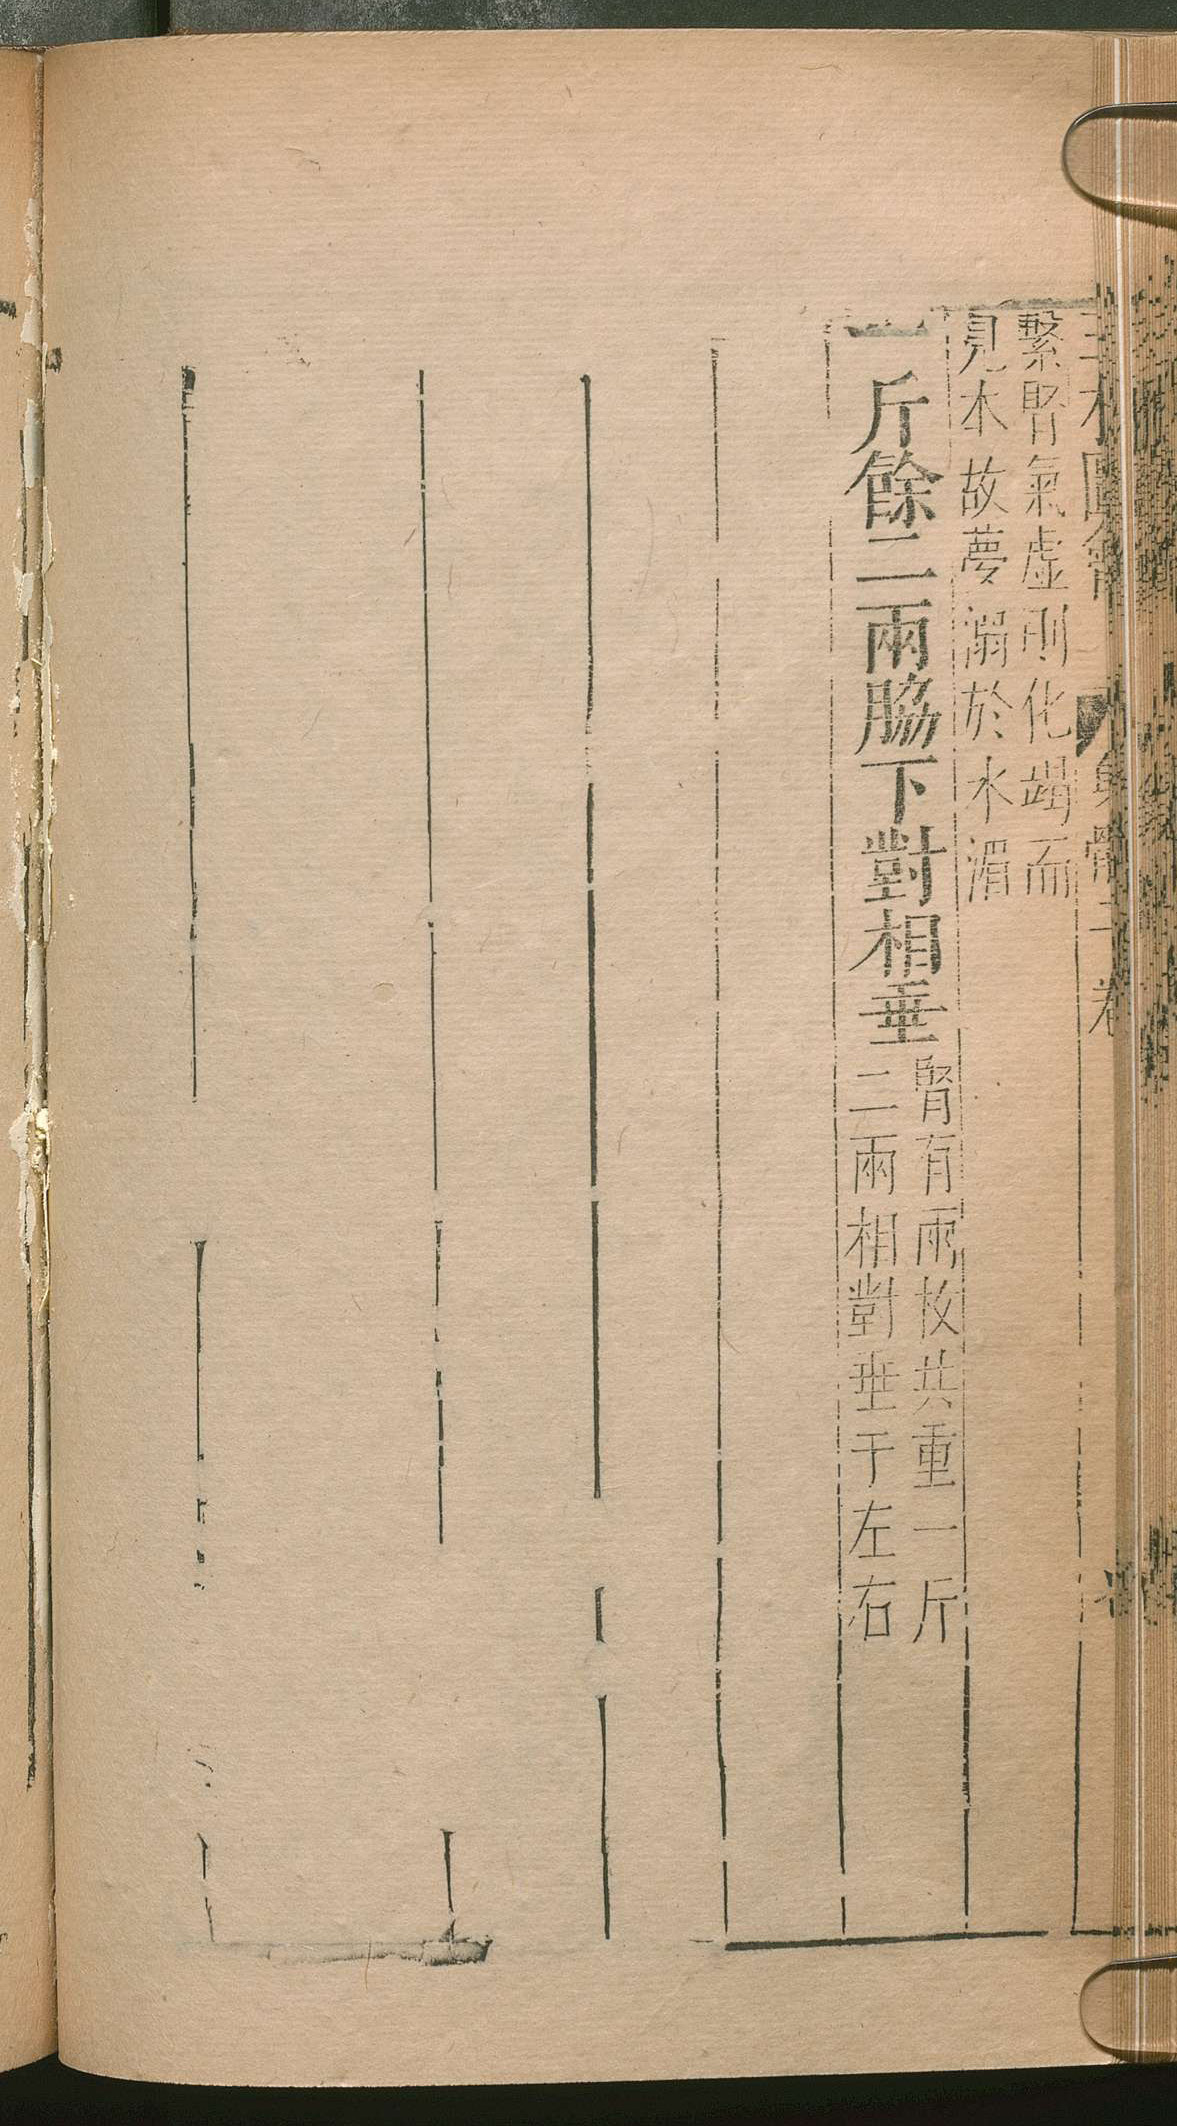 繫腎氣虛則化竭而
見本故夢溺於水湄
一斤餘二兩脇下對相垂
腎有兩枚共重一斤
二兩相對垂于左右